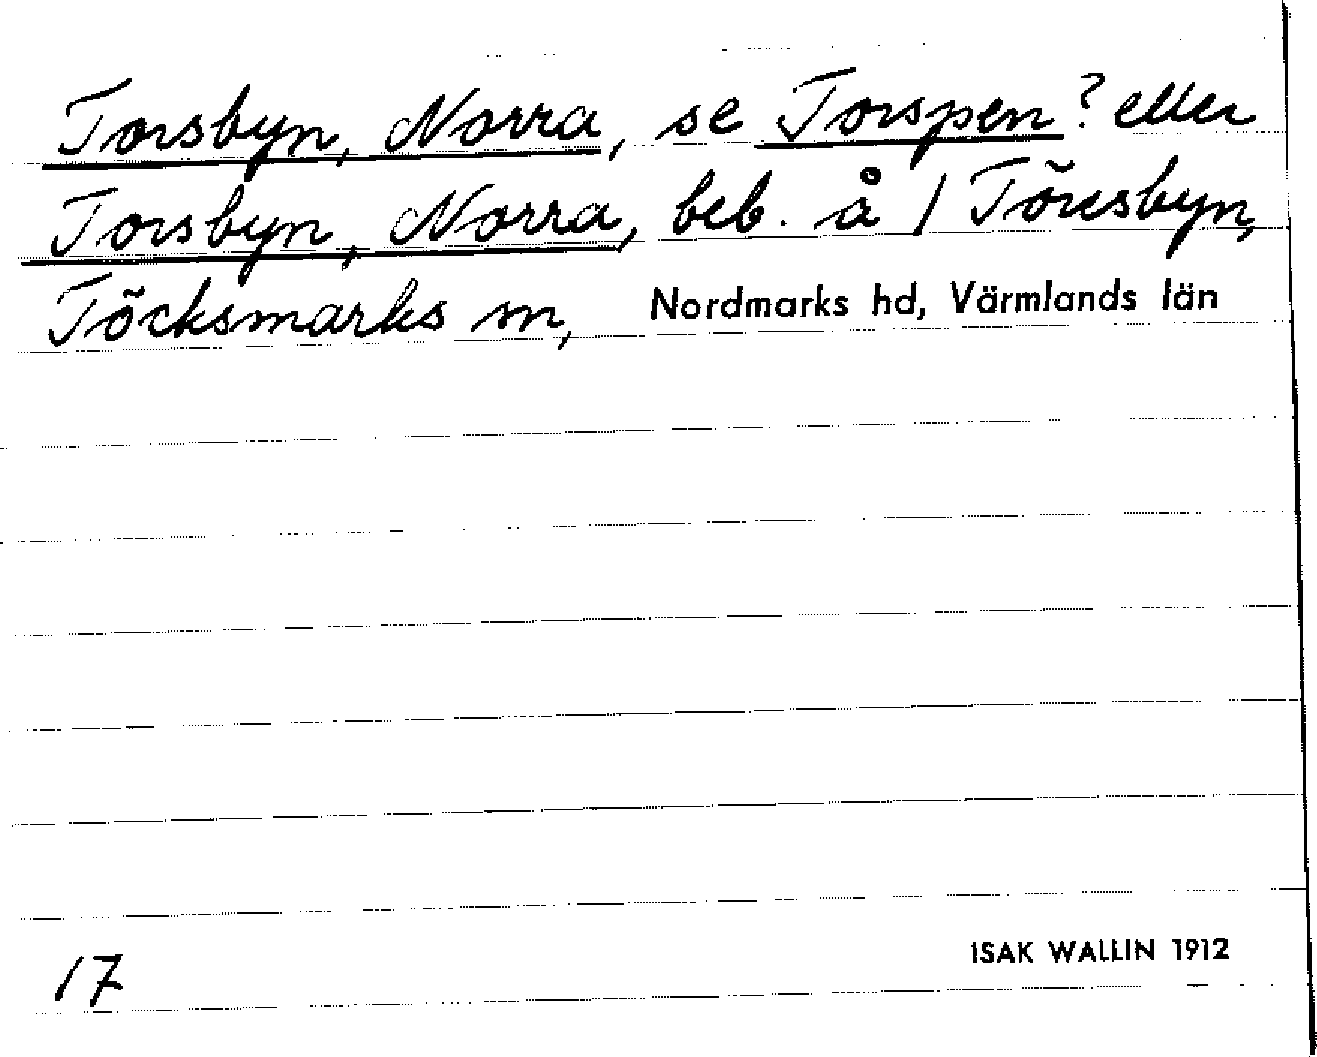 Torsbyn, Norra, se Torspen? eller
Torsbyn, Norra, beb. å 1 Töresbyn,
Töcksmarks sn, Nordmarks hd, Värmlands län
17
ISAK WALLIN 1912